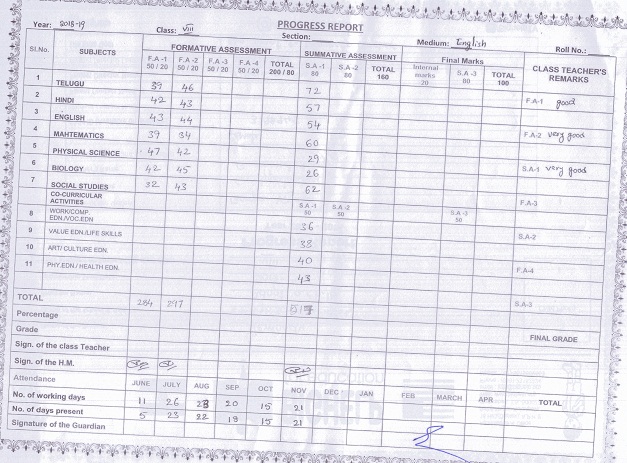 PROGRESS REPORT
Year: 2018-19 Class: VIII Section: Medium: English Roll No.:
Sl.No. SUBJECTS FORMATIVE ASSESSMENT SUMMATIVE ASSESSMENT Final Marks CLASS TEACHER'S REMARKS
F.A -1 50 / 20 F.A -2 50 / 20 F.A -3 50 / 20 F.A -4 50 / 20 TOTAL 200 / 80 S.A -1 80 S.A -2 80 TOTAL 160 Internal marks 20 S.A -3 80 TOTAL 100
1 TELUGU 39 46 72 F.A-1 good
2 HINDI 42 43 57
3 ENGLISH 43 44 54 F.A-2 very good
4 MAHTEMATICS 39 34 60
5 PHYSICAL SCIENCE 47 42 29 S.A-1 very good
6 BIOLOGY 42 45 26
7 SOCIAL STUDIES 32 43 62 F.A-3
CO-CURRICULAR ACTIVITIES S.A -1 50 S.A -2 50 S.A -3 50
8 WORK/COMP. EDN./VOC.EDN 36 S.A-2
9 VALUE EDN./LIFE SKILLS 38
10 ART/ CULTURE EDN. 40 F.A-4
11 PHY.EDN./ HEALTH EDN. 43
TOTAL 284 297 S.A-3
Percentage
Grade FINAL GRADE
Sign. of the class Teacher
Sign. of the H.M.
Attendance JUNE JULY AUG SEP OCT NOV DEC JAN FEB MARCH APR TOTAL
No. of working days 11 26 23 20 15 21
No. of days present 5 23 22 19 15 21
Signature of the Guardian